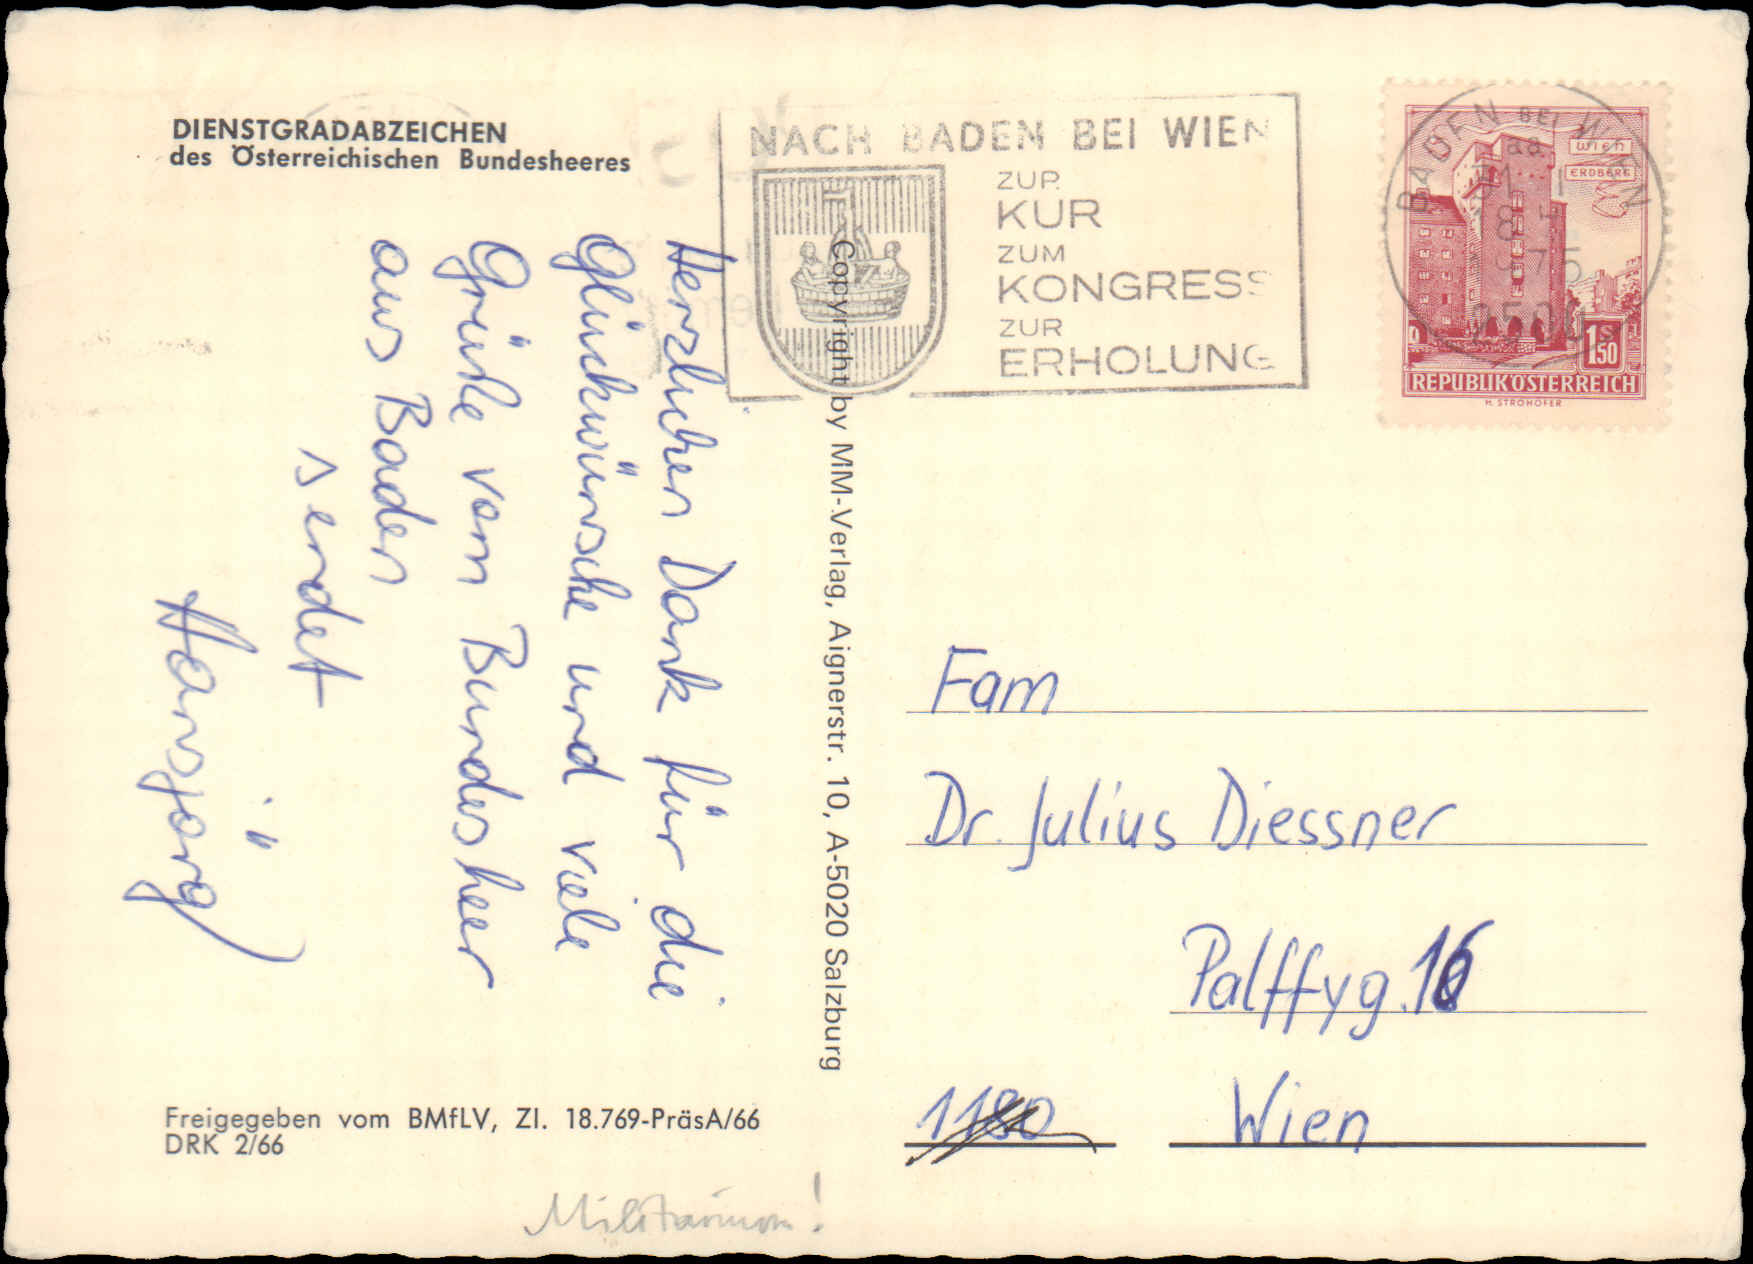 DIENSTGRADABZEICHEN
des Österreichischen Bundesheeres
NACH BADEN BEI WIEN
ZUR
KUR
ZUM
KONGRESS
ZUR
ERHOLUNG
BADEN BEI WIEN
Wien
ERDBERG
1S 50
REPUBLIK ÖSTERREICH
H. STROHOFER
Herzlichen Dank für die
Glückwünsche und viele
Grüße vom Bundesheer
aus Baden
sendet
Hansjörg
Copyright by MM-Verlag, Aignerstr. 10, A-5020 Salzburg
Fam
Dr. Julius Diessner
Palffyg. 16
1180 Wien
Freigegeben vom BMfLV, Zl. 18.769-PräsA/66
DRK 2/66